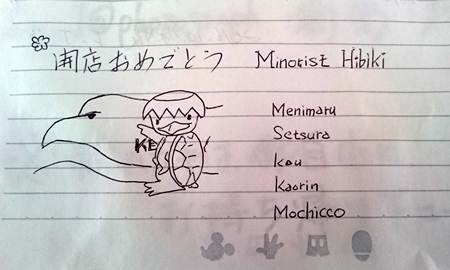 開店おめでとう Minorist Hibiki
Menimaru
Setsura
Kou
Kaorin
Mochicco